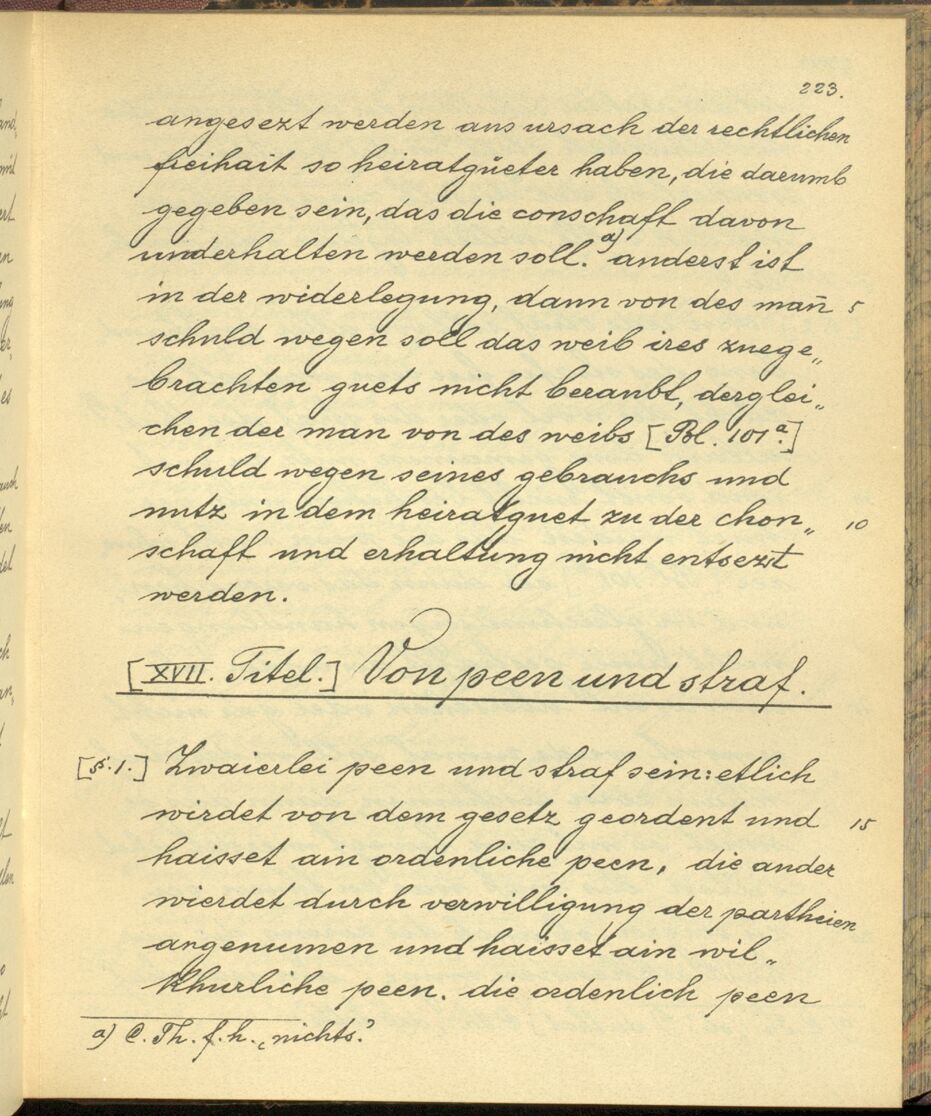 223.
angesezt werden aus ursach der rechtlichen
freihait so heiratgüeter haben, die darumb
gegeben sein, das die conschaft davon
underhalten werden soll. a) anderst ist
in der widerlegung, dann von des man̄ 5
schuld wegen soll das weib ires zuege„
brachten guets nicht beraubt, derglei„
chen der man von des weibs [Bl. 101a.]
schuld wegen seines gebrauchs und
nutz in dem heiratguet zu der chon„ 10
schaft und erhaltung nicht entsezt
werden.
[XVII. Titel.] Von peen und straf.
[§.1.] Zwaierlei peen und straf sein: etlich
wirdet von dem gesetz geordent und 15
haisset ain ordenliche peen, die ander
wierdet durch verwilligung der partheien
angenumen und haisset ain wil„
khurliche peen. die ordenlich peen
a) C. Th. f. h. „nichts“